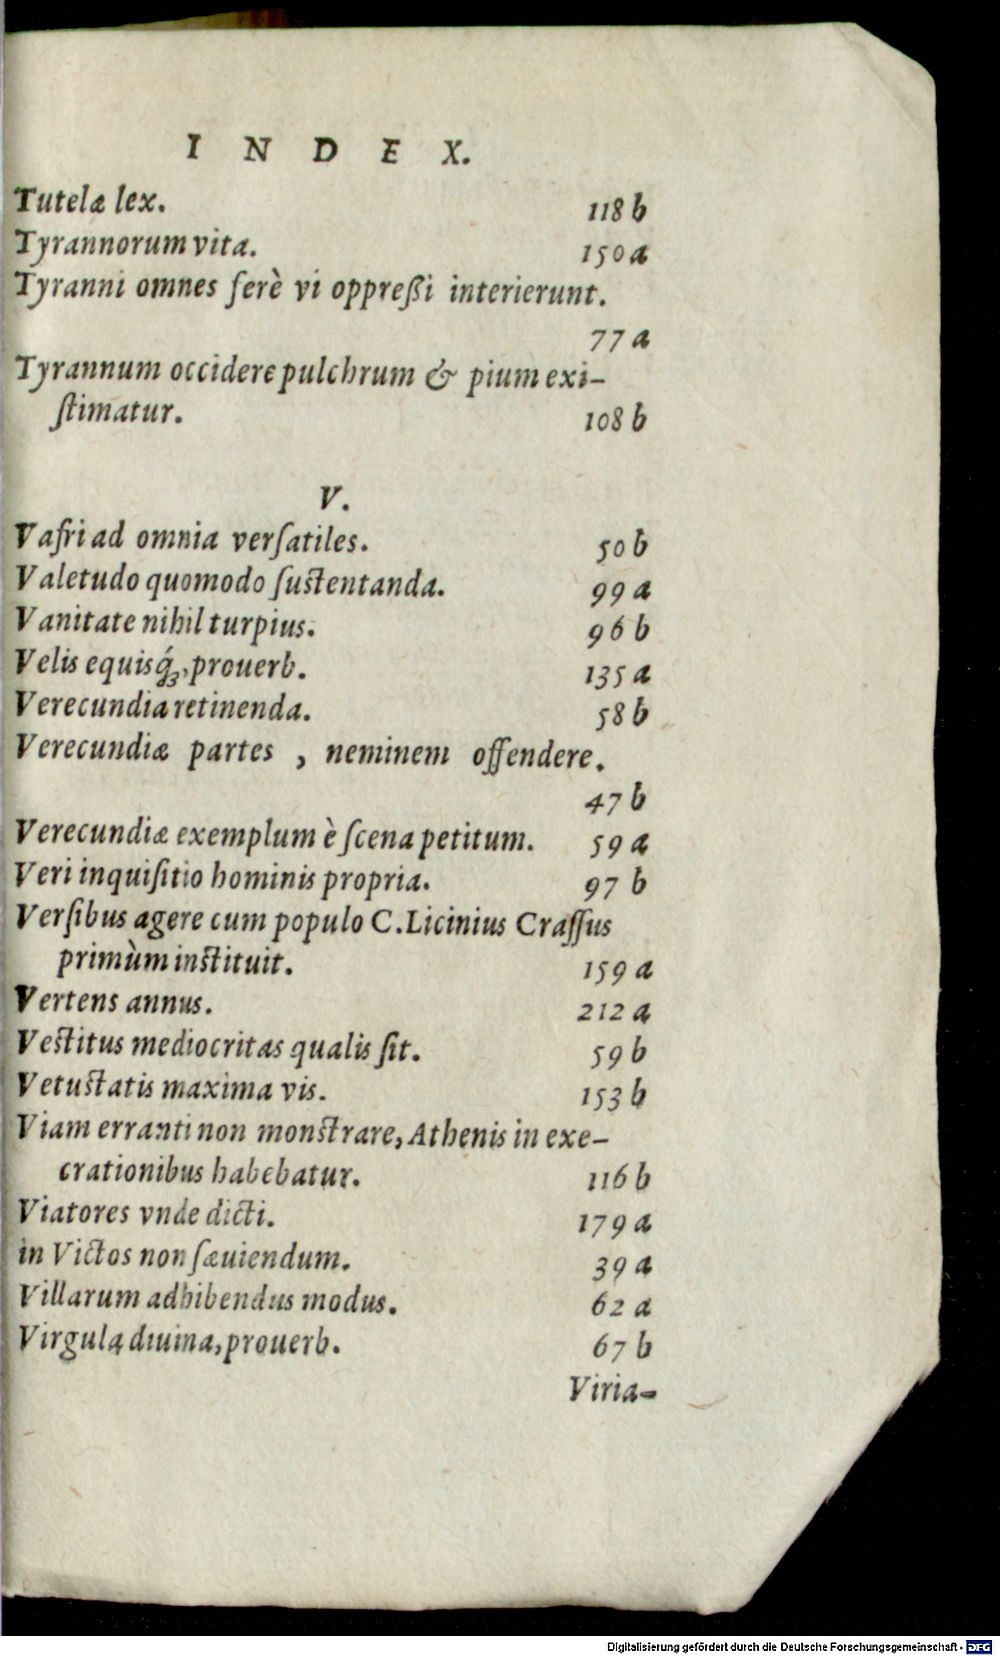 INDEX.
Tutelæ lex. 118 b
Tyrannorum vita. 150 a
Tyranni omnes ferè vi oppreßi interierunt.
77 a
Tyrannum occidere pulchrum & pium exi-
ſtimatur. 108 b
V.
Vafri ad omnia verſatiles. 50 b
Valetudo quomodo ſuſtentanda. 99 a
Vanitate nihil turpius. 96 b
Velis equisq́ꝫ, prouerb. 135 a
Verecundia retinenda. 58 b
Verecundiæ partes , neminem offendere.
47 b
Verecundiæ exemplum è ſcena petitum. 59 a
Veri inquiſitio hominis propria. 97 b
Verſibus agere cum populo C. Licinius Craſſus
primùm inſtituit. 159 a
Vertens annus. 212 a
Veſtitus mediocritas qualis ſit. 59 b
Vetuſtatis maxima vis. 153 b
Viam erranti non monſtrare, Athenis in exe-
crationibus habebatur. 116 b
Viatores vnde dicti. 179 a
in Victos non ſæuiendum. 39 a
Villarum adhibendus modus. 62 a
Virgula diuina, prouerb. 67 b
Viria-
Digitalisierung gefördert durch die Deutsche Forschungsgemeinschaft - DFG